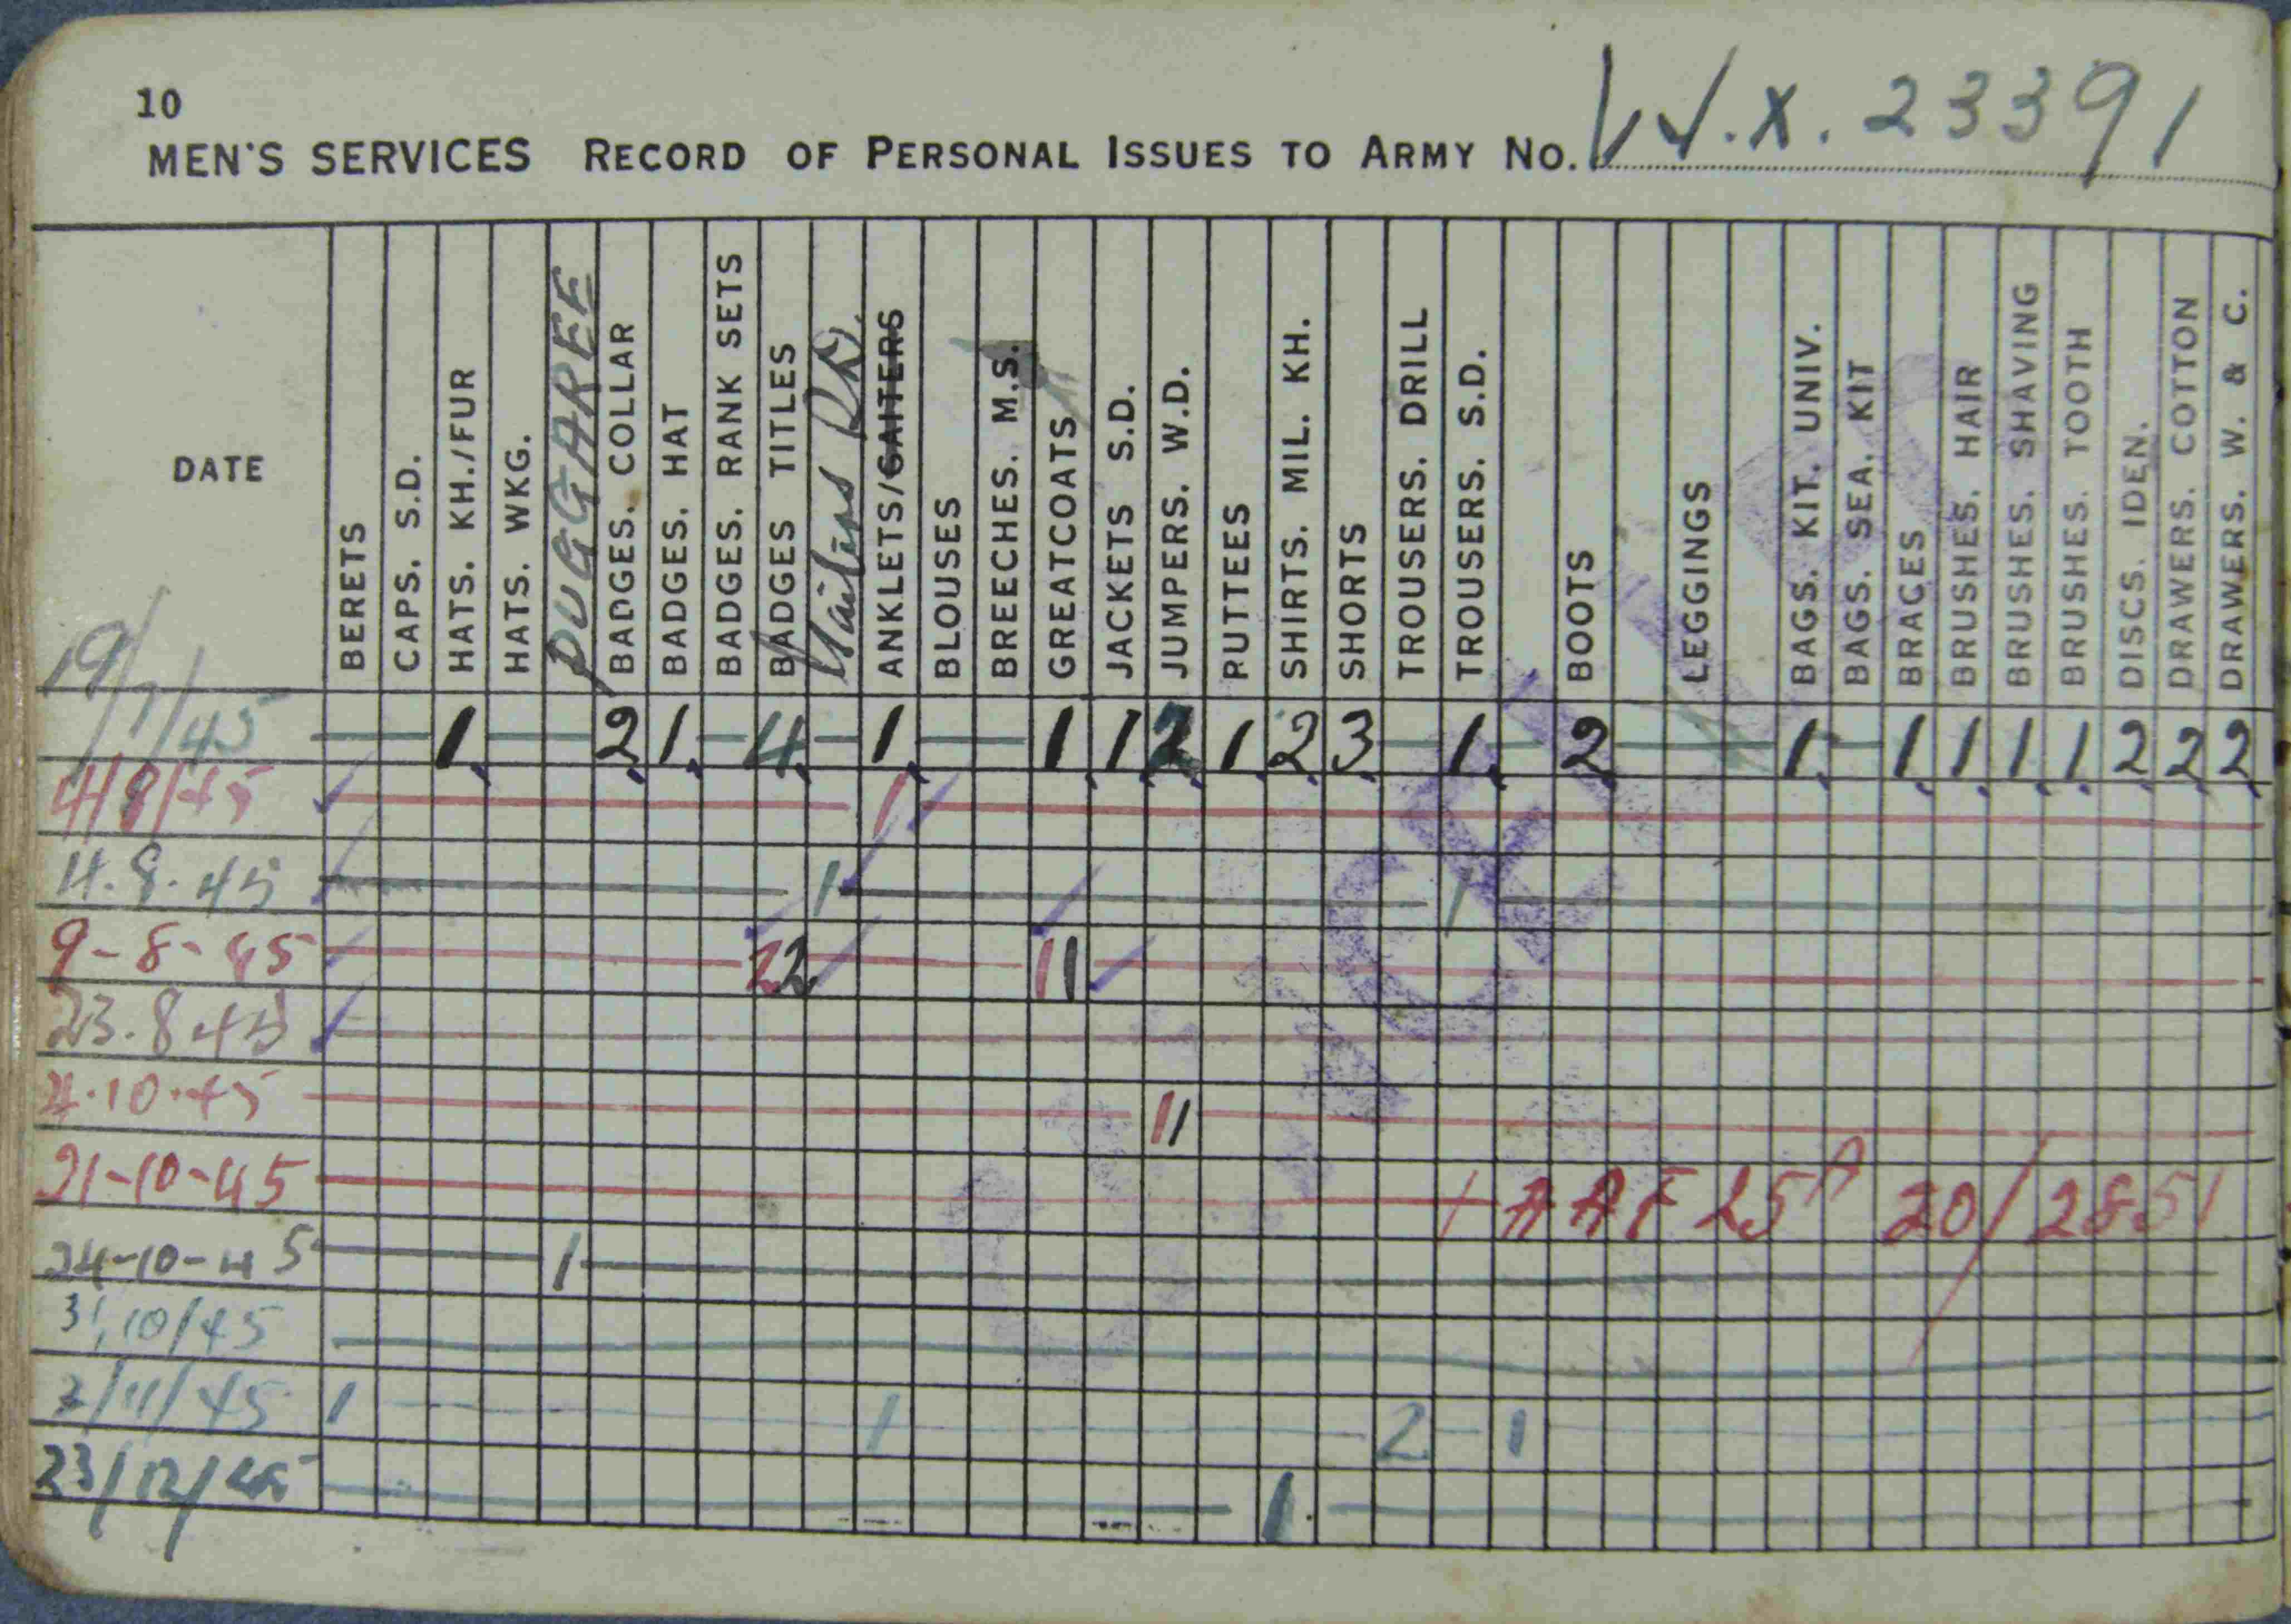 10
MEN'S SERVICES RECORD OF PERSONAL ISSUES TO ARMY NO. W.X. 23391
DATE
BERETS
CAPS. S.D.
HATS. KH./FUR
HATS. WKG.
PUGGAREE
BADGES. COLLAR
BADGES. HAT
BADGES. RANK SETS
BADGES TITLES
ANKLETS/GAITERS
BLOUSES
BREECHES. M.S.
GREATCOATS
JACKETS S.D.
JUMPERS. W.D.
PUTTEES
SHIRTS. MIL. KH.
SHORTS
TROUSERS. DRILL
TROUSERS. S.D.
BOOTS
LEGGINGS
BAGS. KIT. UNIV.
BAGS. SEA. KIT
BRACES
BRUSHES. HAIR
BRUSHES. SHAVING
BRUSHES. TOOTH
DISCS. IDEN.
DRAWERS. COTTON
DRAWERS. W. & C.
19/7/45 1. 2. 1. 4. 1. 1 1 2 1. 2. 3. 1. 2 1. 1 1 1 1 2 2 2
4/8/45 1
4.8.45 1 1
9-8-45 2 2 1 1
23.8 45
4.10.45 1 1
21-10-45 1 A A F 25A 20/2851
24-10-45 1
31/10/45
2/11/45 1 1 2 1
23/12/45 1